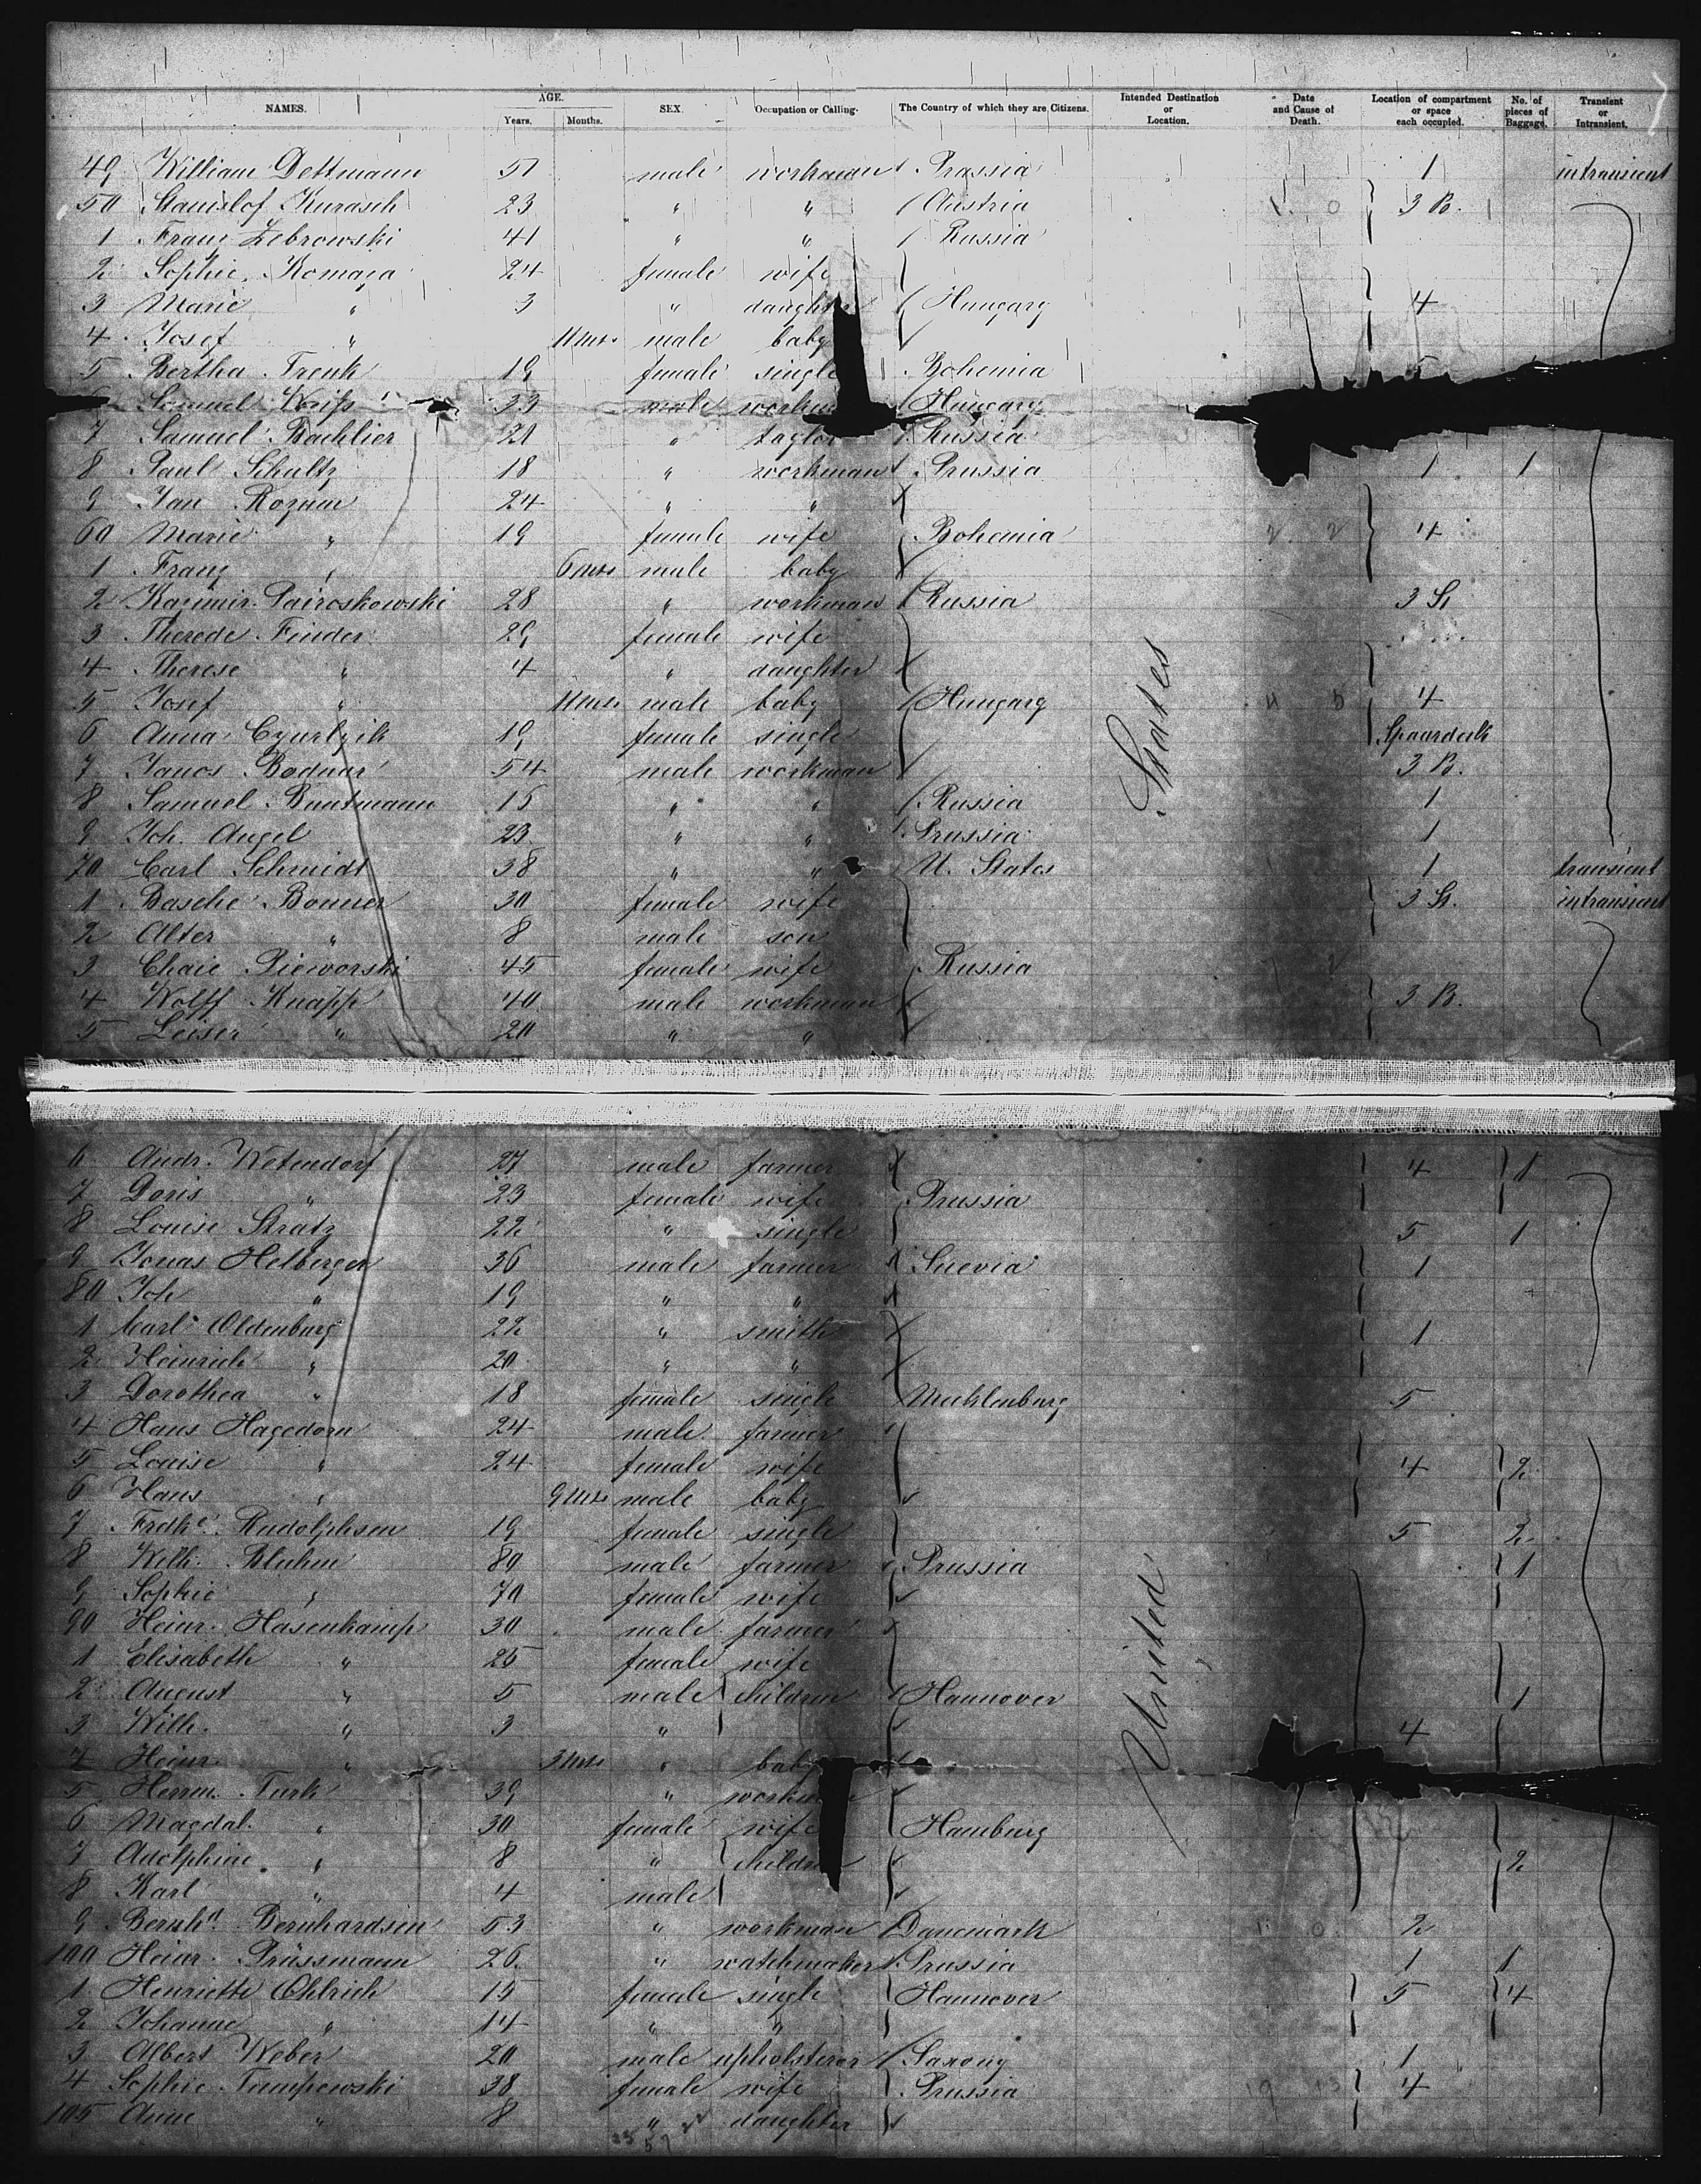 NAMES. AGE. Years. Months. SEX. Occupation or Calling. The Country of which they are Citizens. Intended Destination or Location. Date and Cause of Death. Location of compartment or space each occupied. No. of pieces of Baggage. Transient or Intransient.
49 William Dettmann 51 male workman Prussia 1 intransient
50 Stanislof Kurasch 23 " " Austria 3 B.
1 Franz Zebrowski 41 " " Russia
2 Sophie Komaja 24 female wife
3 Marie " 3 " daughter Hungary 4
4 Josef " 11 mts male baby
5 Bertha Trenk 19 female single Bohemia
Samuel Weiss 33 male workm Hungary
7 Samuel Bachlier 21 " taylor Russia
8 Paul Schultz 18 " workman Prussia 1 1
9 Jan Rozum 24 " "
60 Marie " 19 female wife Bohemia 4
1 Franz " 6 mts male baby
2 Kazimir Pairoskowski 28 " workman Russia 3 St
3 Therede Finder 29 female wife
4 Therese " 4 " daughter
5 Josef " 11 mts male baby Hungary 4
6 Anna 19 female single Spaardeck
7 Janos Bodnar 54 male workman 3 B.
8 Samuel Buntmann 15 " " Russia 1
9 Joh. Angel 23 " " Prussia 1
70 Carl Schmidt 38 " " U. States 1 transient
1 Basche Bonner 30 female wife 3 St. intransient
2 Alter " 8 male son
3 Chaie Pieworski 45 female wife Russia
4 Wolff Knapp 40 male workman 3 B.
5 Leiser " 20 " "
6 Andr. Wetendorf 27 male farmer 4 1
7 Doris " 23 female wife Prussia
8 Louise Stratz 22 " single 5 1
9 Jonas Helberger 36 male farmer Suevia 1
80 Joh " 19 " "
1 Carl Oldenburg 22 " smith 1
2 Heinrich " 20 " "
3 Dorothea " 18 female single Mecklenburg 5
4 Hans Hagedorn 24 male farmer
5 Louise " 24 female wife 4 2
6 Hans " 9 mts male baby
7 Frdke Rudolphsen 19 female single 5 2
8 Wilh. Bluhm 80 male farmer Prussia 1
9 Sophie " 70 female wife
90 Heinr. Hasenkamp 30 male farmer
1 Elisabeth " 25 female wife
2 August " 5 male children Hannover 1
3 Wilh. " 3 " 4
4 Heinr. " 3 mts " baby
5 Herm. Turk 39 " workman
6 Magdal. " 30 female wife Hamburg
7 Adolphine " 8 " children 2
8 Karl " 4 male
9 Bernhd. Bernhardsen 53 " workman Danemark 2
100 Heinr. Prüssmann 26 " watchmaker Prussia 1 1
1 Henriette Ohlrich 15 female single Hannover 5 4
2 Johanne " 14 " "
3 Albert Weber 20 male upholsterer Saxony 1
4 Sophie Tumpowski 38 female wife Prussia 4
105 Anne " 8 " daughter
United States